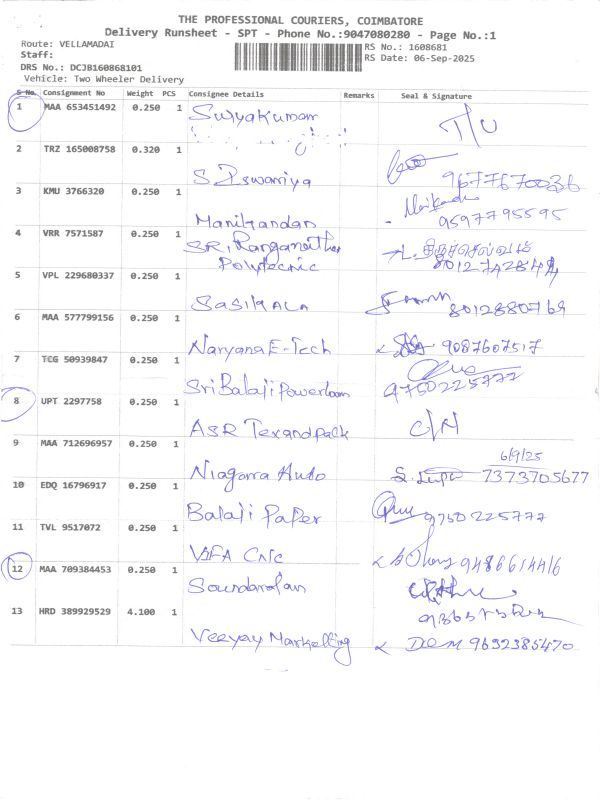 THE PROFESSIONAL COURIERS, COIMBATORE
Delivery Runsheet - SPT - Phone No.:9047080280 - Page No.:1
Route: VELLAMADAI
RS No.: 1608681
Staff:
RS Date: 06-Sep-2025
DRS No.: DCJB160868101
Vehicle: Two Wheeler Delivery
S No. Consignment No Weight PCS Consignee Details Remarks Seal & Signature
1 MAA 653451492 0.250 1 Suryakumar
2 TRZ 165008758 0.320 1 S. Iswariya 9677670036
3 KMU 3766320 0.250 1 Manikandan 9597795595
4 VRR 7571587 0.250 1 SR. Ranganathar Polytecnic
5 VPL 229680337 0.250 1 SASIKALA 8012880769
6 MAA 577799156 0.250 1 Naryana E-Tech 9087607517
7 TCG 50939847 0.250 1 Sri Balaji Powerloom 9750225777
8 UPT 2297758 0.250 1 ASR Texandpack C/N
9 MAA 712696957 0.250 1 Niagara Auto 6/9/25 7373705677
10 EDQ 16796917 0.250 1 Balaji Paper 9750225777
11 TVL 9517072 0.250 1 CNC 9486614416
12 MAA 709384453 0.250 1
13 HRD 389929529 4.100 1 Veeyay Markelling 9632385470